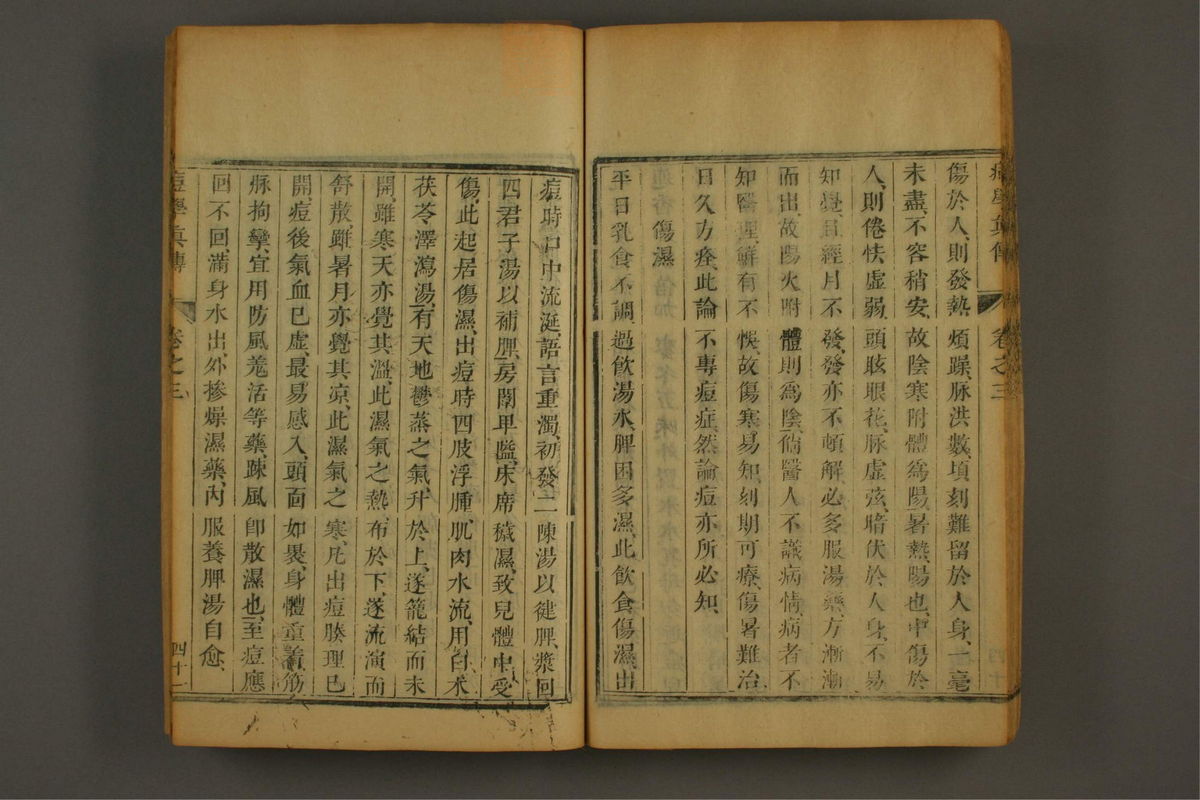 痘學眞傳 卷之三
傷於人、則發熱煩躁、脉洪數、項刻難留於人身、一毫
未盡、不容稍安、故陰寒附體爲陽、暑熱、陽也、中傷於
人、則倦怯虛弱、頭眩眼花、脉虛弦、暗伏於人身、不易
知覺、且經月不發、發亦不頓解、必多服湯藥、方漸漸
而出、故陽火附體則爲陰、倘醫人不識病情、病者不
知醫理、鮮有不悞、故傷寒易知、刻期可療、傷暑難治、
日久方痊、此論不專痘症、然論痘亦所必知、
傷濕
平日乳食不調、過飲湯水、脾困多濕、此飲食傷濕、出
痘時口中流涎、語言重濁、初發二陳湯以健脾、漿回
四君子湯以補脾、房閨卑監、床席穢濕、致兒體中受
傷、此起居傷濕、出痘時四肢浮腫、肌肉水流、用白术
茯苓澤瀉湯、有天地鬱蒸之氣升於上、遂籠結而未
開、雖寒天亦覺其溫、此濕氣之熱、布於下、遂流演而
舒散、雖暑月亦覺其凉、此濕氣之寒、凡出痘腠理已
開、痘後氣血已虛、最易感入、頭面如裹、身體重着、筋
脉拘攣、宜用防風羗活等藥、疎風卽散濕也、至痘應
回不回、滿身水出、外摻燥濕藥、內服養脾湯自愈、
痘學眞傳 卷之三 四十一